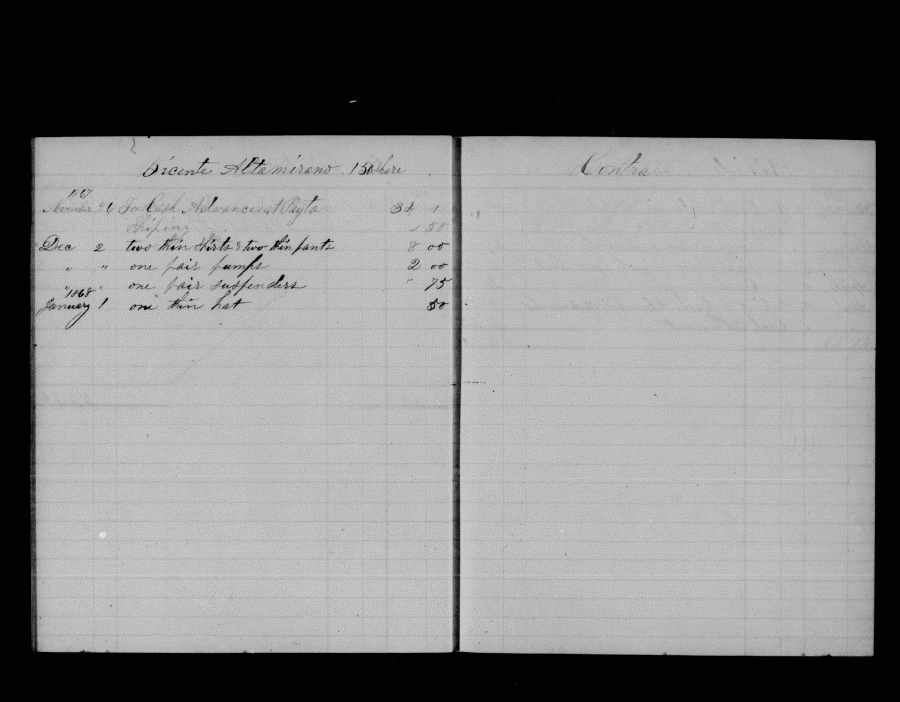 Vicente Altamirano 150 Share
1867
November 26 To Cash Advanced at Payta 34 1
Shiping 1 50
Dec 2 two thin shirts & two thin pants 8 00
" " one pair pumps 2 00
" " one pair suspenders " 75
1868
January 1 one thin hat 50
Contra